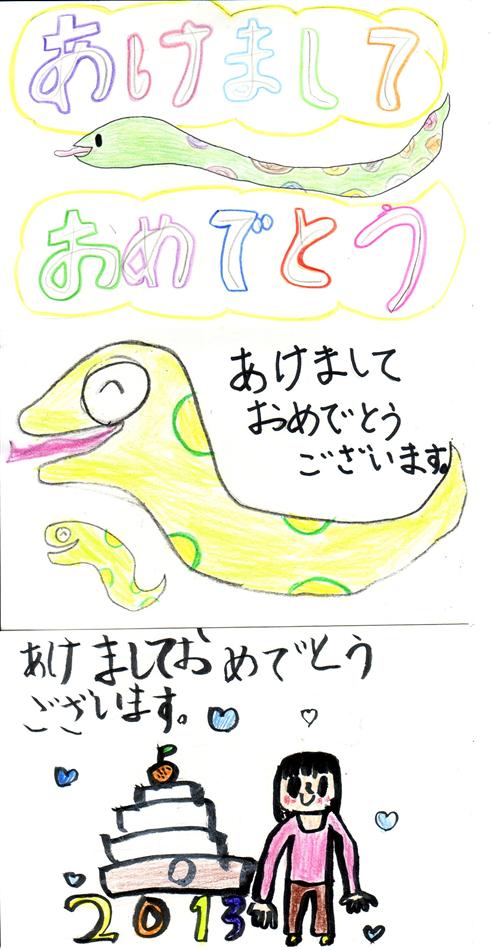 あけまして
おめでとう
あけまして
おめでとう
ございます。
あけましておめでとう
ございます。
2013